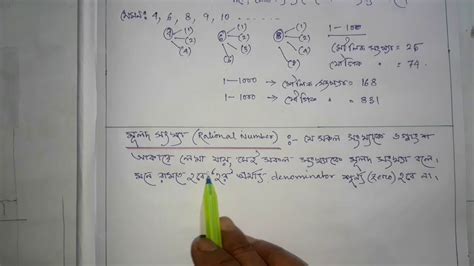 যেমন: 4, 6, 8, 9, 10 ......
4 (1) (2) (4) 6 (1) (2) 8 (1) (2) (4)
1 - 100
মৌলিক সংখ্যা = 25
যৌগিক " = 74
1 - 1000 → মৌলিক সংখ্যা = 168
1 - 1000 → যৌগিক " = 831
মূলদ সংখ্যা (Rational Number) :- যে সকল সংখ্যাকে ভগ্নাংশ
আকারে লেখা যায় সেই সকল সংখ্যাকে মূলদ সংখ্যা বলে।
মনে রাখতে হবে হর অর্থাৎ denominator শূন্য (zero) হবে না।